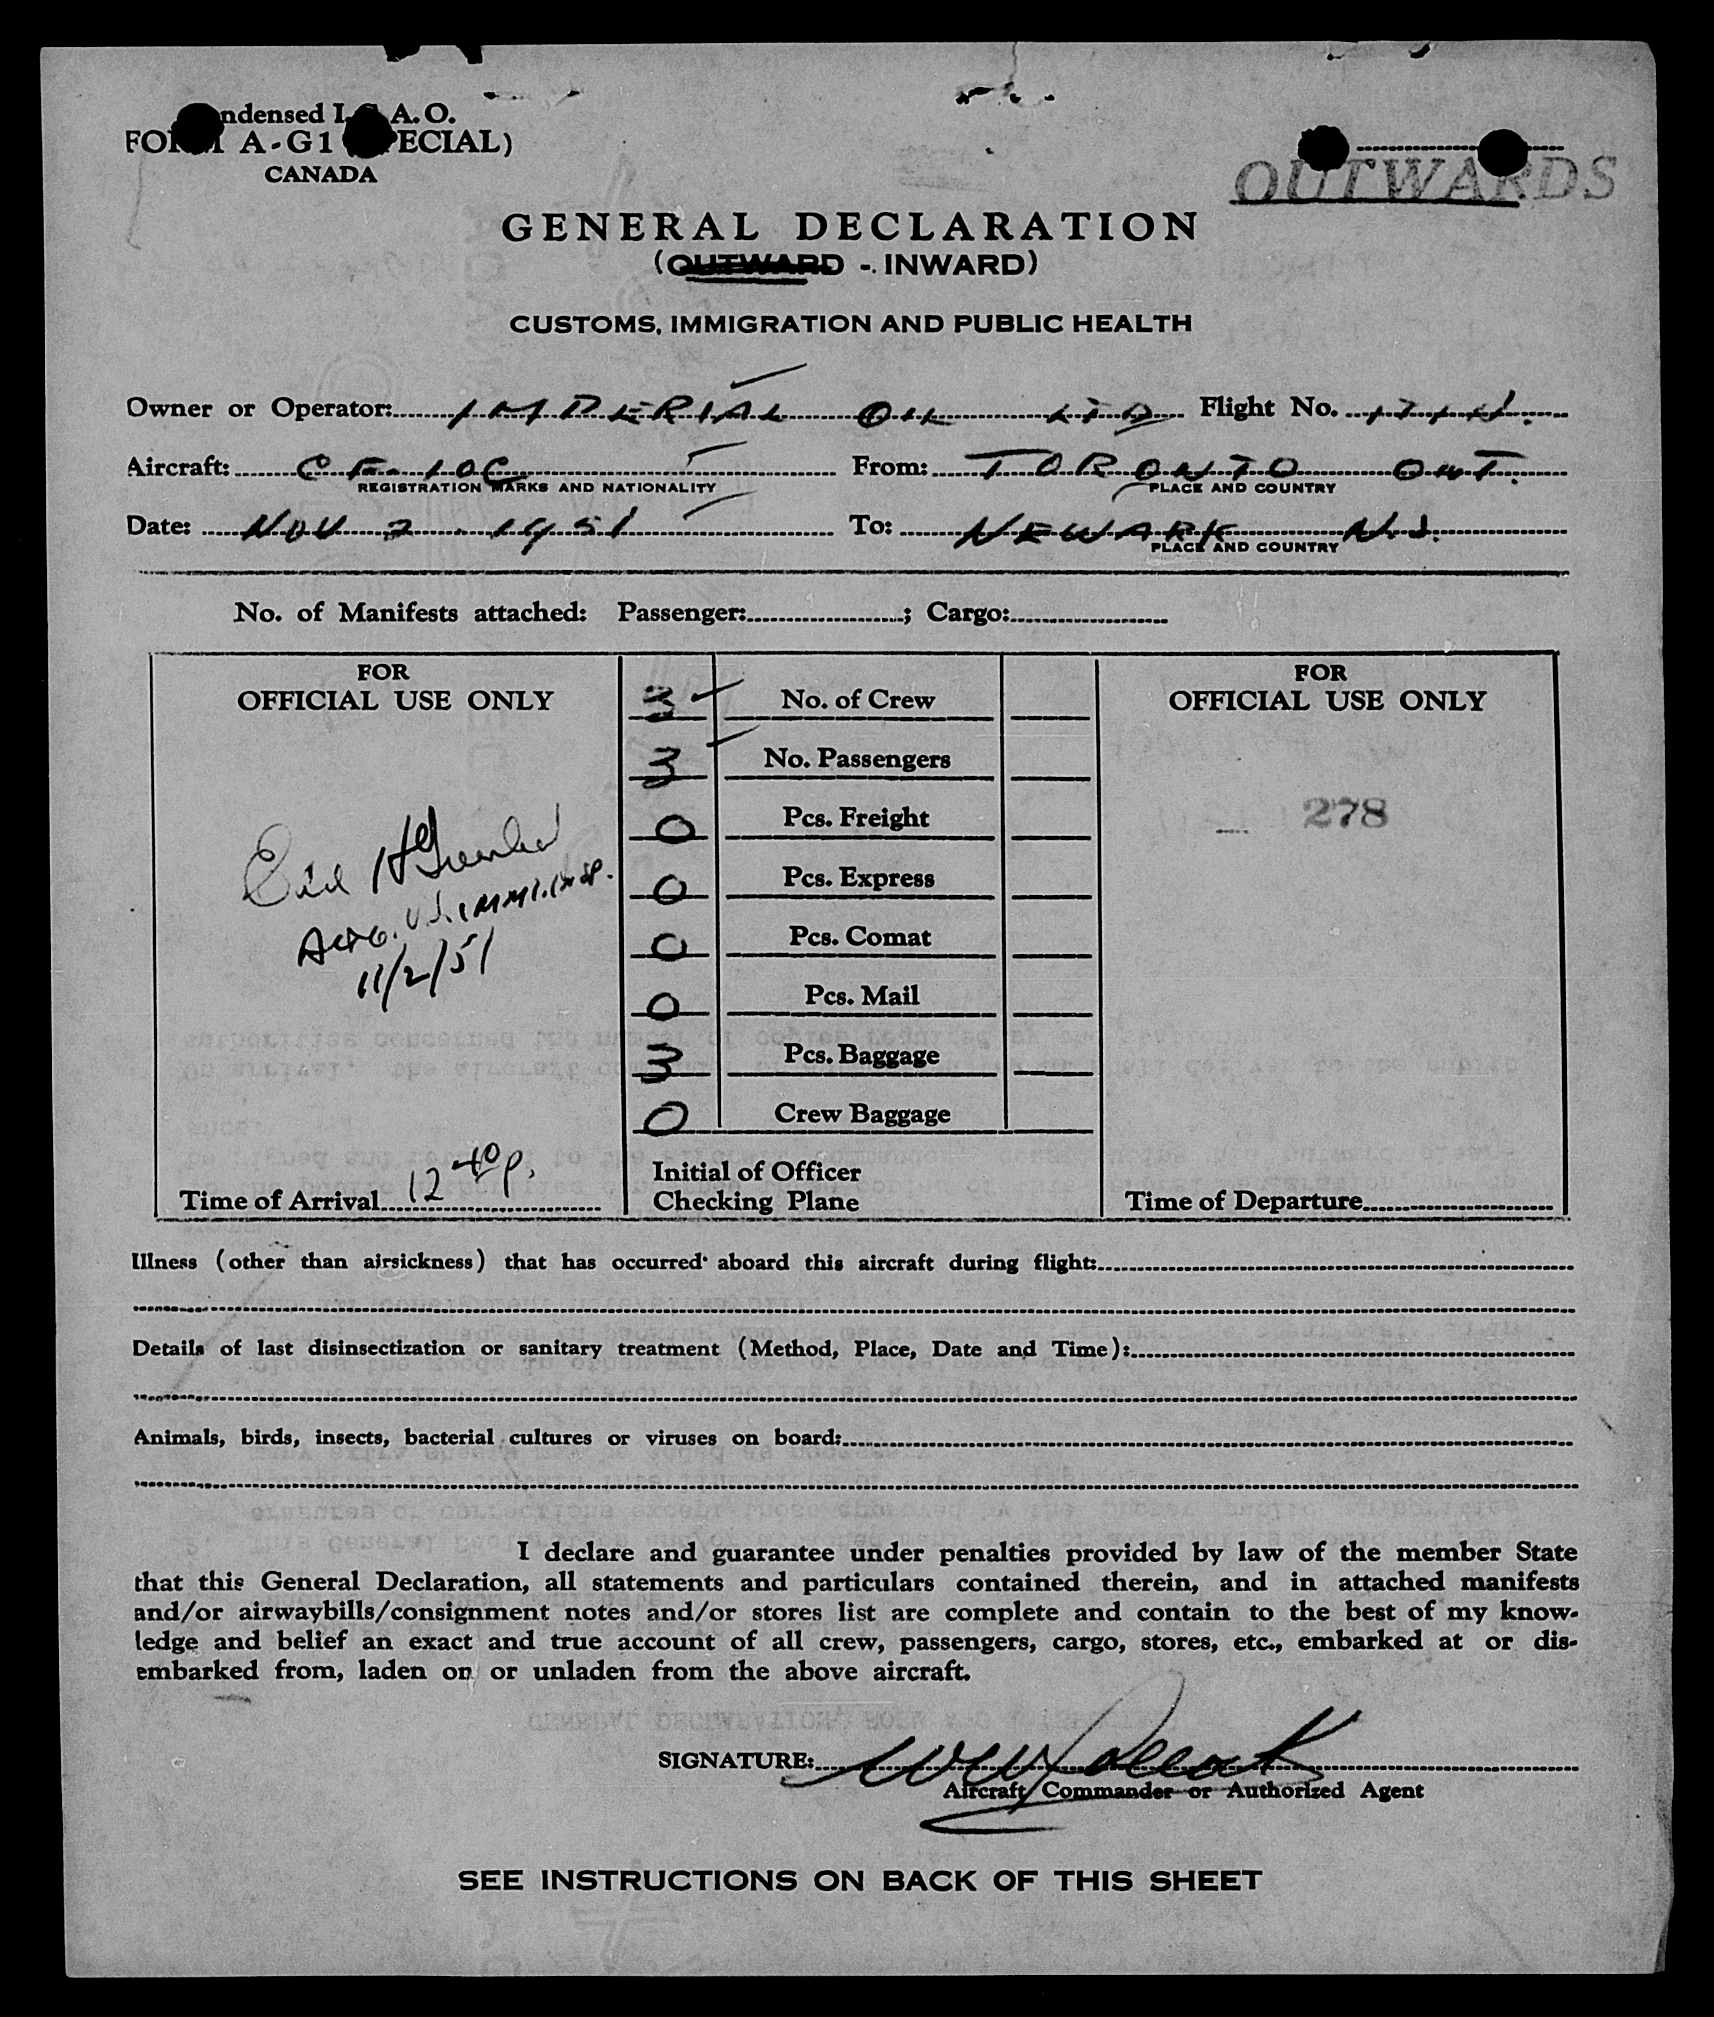 Condensed I.C.A.O.
FORM A-G1 (SPECIAL)
CANADA
OUTWARDS
GENERAL DECLARATION
(OUTWARD - INWARD)
CUSTOMS, IMMIGRATION AND PUBLIC HEALTH
Owner or Operator: IMPERIAL OIL LTD Flight No.
Aircraft: CF-IOC From: TORONTO ONT.
REGISTRATION MARKS AND NATIONALITY PLACE AND COUNTRY
Date: NOV 2 1951 To: NEWARK N.J.
PLACE AND COUNTRY
No. of Manifests attached: Passenger: ; Cargo:
FOR
OFFICIAL USE ONLY
H
ACTG. U.S. IMMI. INSP.
11/2/51
Time of Arrival 12 40 P.
3 No. of Crew
3 No. Passengers
0 Pcs. Freight
0 Pcs. Express
0 Pcs. Comat
0 Pcs. Mail
3 Pcs. Baggage
0 Crew Baggage
Initial of Officer
Checking Plane
FOR
OFFICIAL USE ONLY
278
Time of Departure
Illness (other than airsickness) that has occurred aboard this aircraft during flight:
Details of last disinsectization or sanitary treatment (Method, Place, Date and Time):
Animals, birds, insects, bacterial cultures or viruses on board:
I declare and guarantee under penalties provided by law of the member State
that this General Declaration, all statements and particulars contained therein, and in attached manifests
and/or airwaybills/consignment notes and/or stores list are complete and contain to the best of my know-
ledge and belief an exact and true account of all crew, passengers, cargo, stores, etc., embarked at or dis-
embarked from, laden on or unladen from the above aircraft.
SIGNATURE:
Aircraft Commander or Authorized Agent
SEE INSTRUCTIONS ON BACK OF THIS SHEET